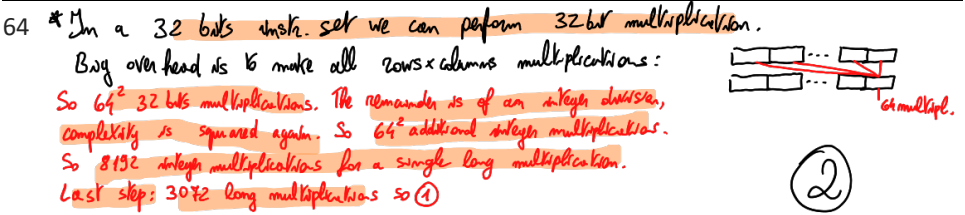 64 * In a 32 bits instr. set we can perform 32 bit multiplication.
Big overhead is to make all rows x columns multiplications:
So 64² 32 bits multiplications. The remainder is of an integer division,
complexity is squared again. So 64² additional integer multiplications.
So 8192 integer multiplications for a single long multiplication.
Last step: 3072 long multiplications so ①
64 multipl.
②